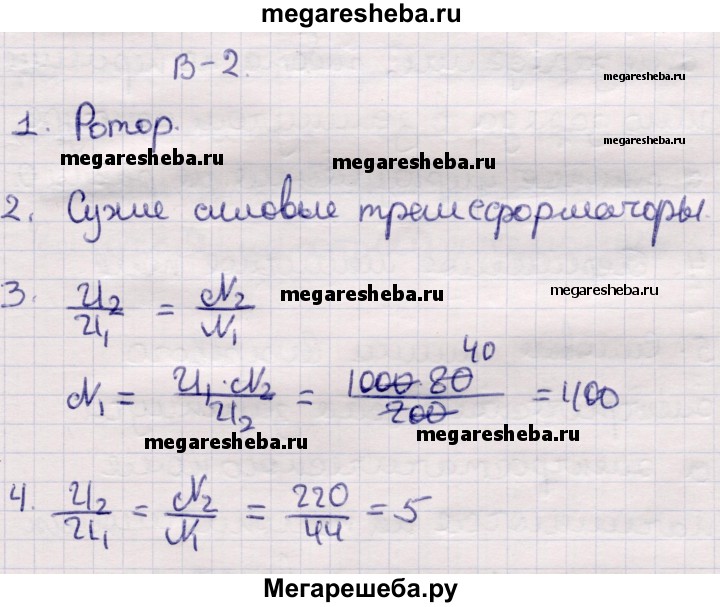 megaresheba.ru
В-2.
megaresheba.ru
1. Ротор.
megaresheba.ru
megaresheba.ru
megaresheba.ru
2. Сухие силовые трансформаторы.
3. U₂/U₁ = N₂/N₁
megaresheba.ru
megaresheba.ru
N₁ = U₁·N₂/U₂ = 1000·80/200 40 = 400
megaresheba.ru
megaresheba.ru
4. U₂/U₁ = N₂/N₁ = 220/44 = 5
Мегарешеба.ру